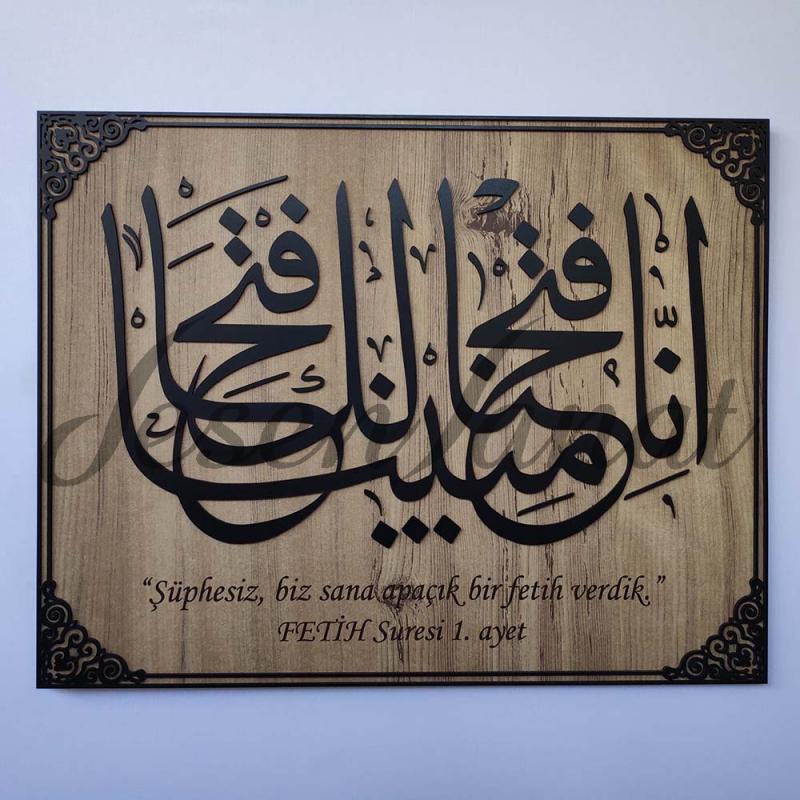 إِنَّا فَتَحْنَا لَكَ فَتْحًا مُبِينًا
“Şüphesiz, biz sana apaçık bir fetih verdik.”
FETİH Suresi 1. ayet